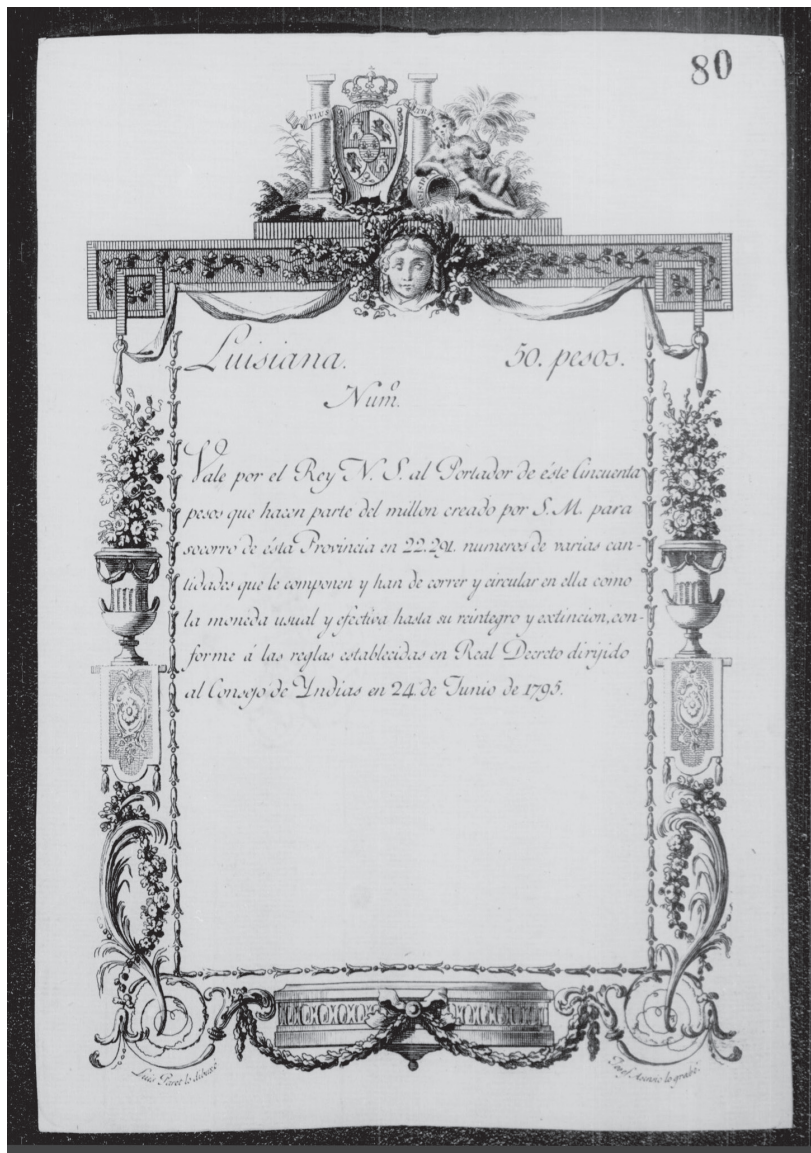 80
PLUS VLTRA
Luisiana. 50. pesos.
Num.º
Vale por el Rey N. S. al Portador de éste Cincuenta
pesos que hacen parte del millon creado por S. M. para
socorro de ésta Provincia en 22.291. numeros de varias can-
tidades que le componen y han de correr y circular en ella como
la moneda usual y efectiva hasta su reintegro y extincion, con-
forme á las reglas establecidas en Real Decreto dirijido
al Consejo de Yndias en 24 de Junio de 1795.
Luis Paret lo dibuxó. Asensio lo grabó.